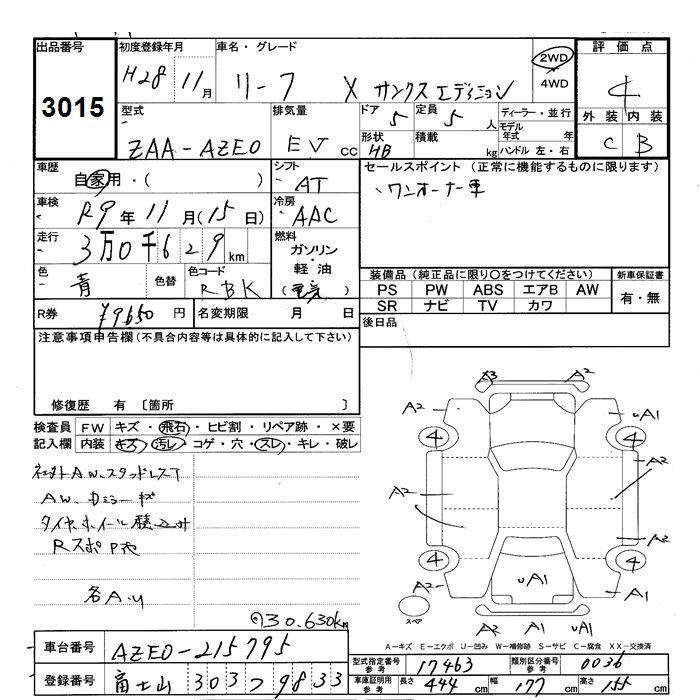 出品番号 初度登録年月 車名・グレード 評価点
3015 H28 11月 リーフ X サンクスエディション 2WD 4WD 4
型式 排気量 ドア 定員 ディーラー・並行 外装 内装
ZAA-AZE0 EV cc 5 5人 モデル年式 年 C B
形状 HB 積載 kg ハンドル 左・右
車歴 自家用・( ) シフト AT セールスポイント (正常に機能するものに限ります)
車検 R9年11月(15日) 冷房 AAC ワンオーナー車
走行 3万0千629km 燃料 ガソリン・軽油
色 青 色替 色コード RBK 装備品(純正品に限り○をつけてください) 新車保証書
PS PW ABS エアB AW 有・無
SR ナビ TV カワ
R券 ¥9650円 名変期限 月 日 後日品
注意事項申告欄(不具合内容等は具体的に記入して下さい)
修復歴 有 〔箇所 〕
検査員記入欄 FW キズ・飛石・ヒビ割・リペア跡・×要
内装 キズ・汚レ・コゲ・穴・スレ・キレ・破レ
AW、スタッドレスT
AW、Dミラーキズ
タイヤホイール積込み
各A.U
30.630km
A3 A2
A2 uA1
4 4
A2 A2
A2
4 4
A2 uA1 A2
スペア
A2 A1 uA1
A-キズ E-エクボ U-凹み W-補修跡 S-サビ C-腐食 XX-交換済
車台番号 AZE0-215795
型式指定番号 参考 17463 類別区分番号 参考 0036
登録番号 富士山 303 フ 9833
車庫証明用 参考 長さ 444cm 幅 177cm 高さ 155cm